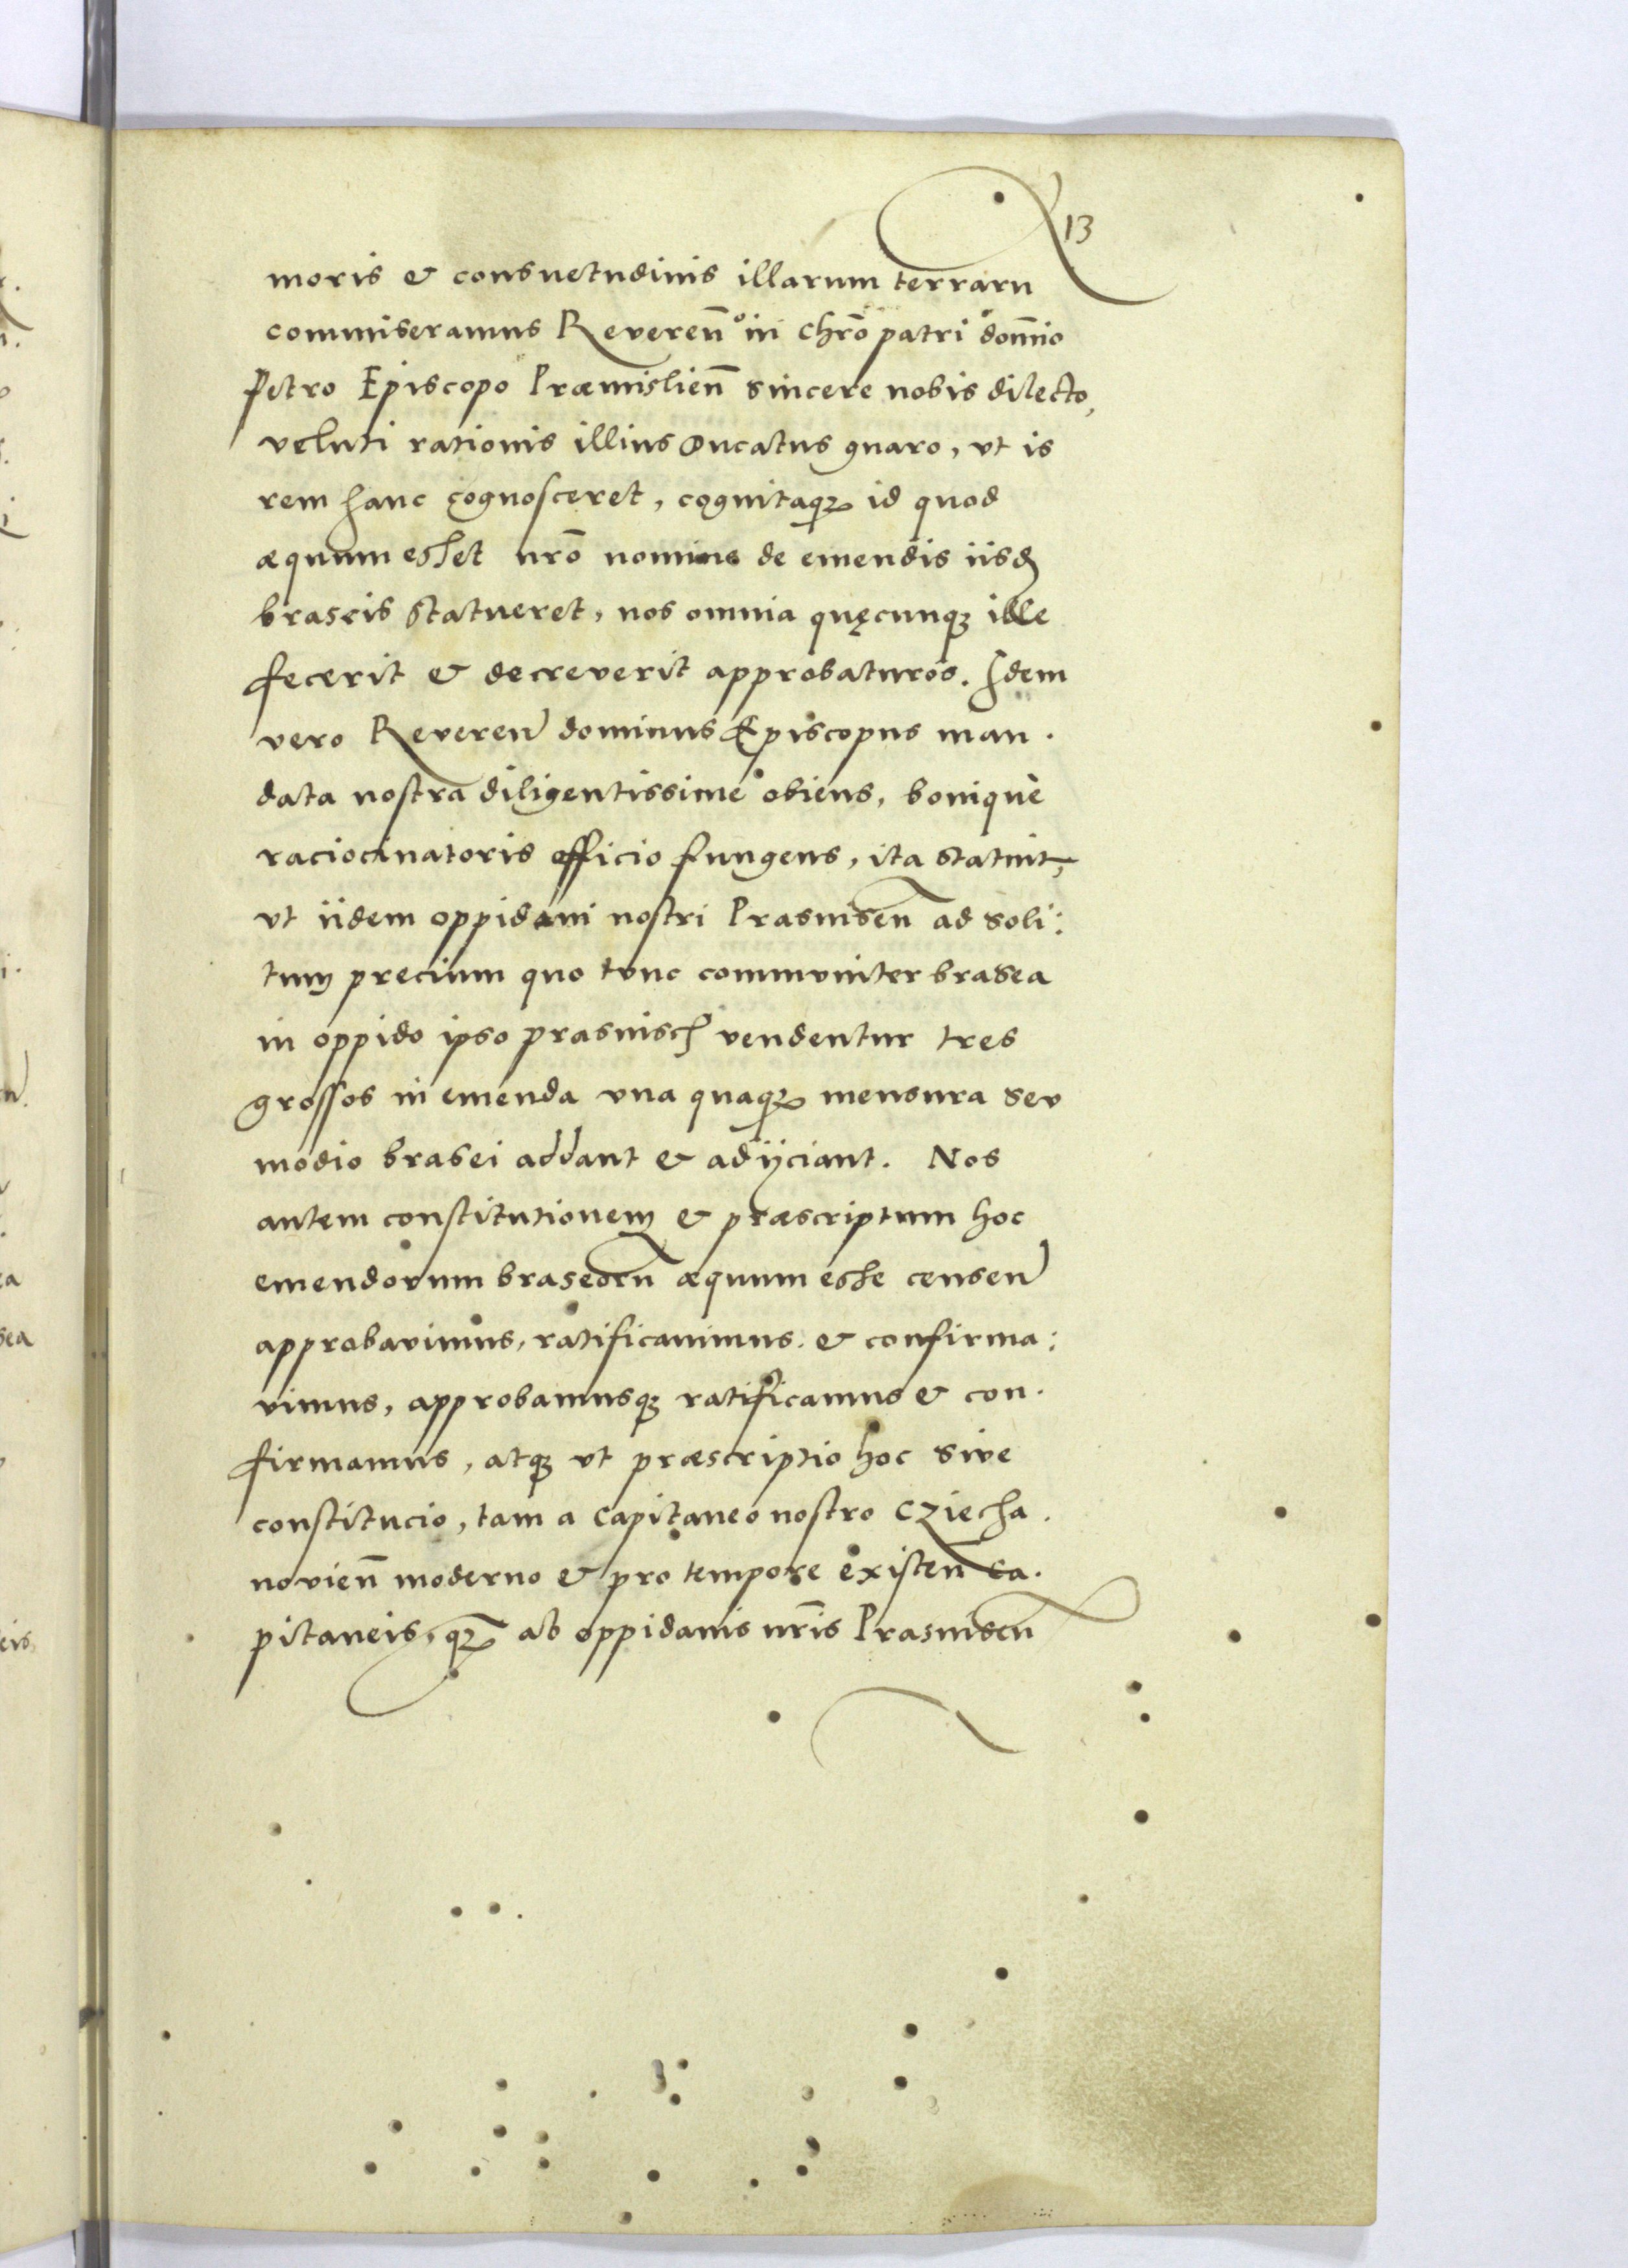 13
moris & consuetudinis illarum terrarū
commiseramus Reverenn̄° in chrō patri domīno
Petro Episcopo Præmislien̄ sincere nobis dilecto,
veluti rationis illius Ducatus gnaro, ut is
rem hanc cognosceret, cognitaqꝫ id quod
æquum esset nrō nomine de emendis iisdē
braseis statueret, nos omnia quęcunqꝫ ille
fecerit & decreverit approbaturos. Idem
vero Reveren̄ dominus Episcopus man.
data nostra diligentissime obiens, bonique
raciocinatoris officio fungens, ita statuit,
ut iidem oppidani nostri Prasnisen̄ ad soli:
tum precium quo tunc communiter brasea
in oppido ipso prasnisch vendentur tres
grossos in emenda una quaqꝫ mensura seu
modio brasei addant & adijciant. Nos
autem constitutionem & præscriptum hoc
emendorum braseorū æquum esse censen̄
approbavimus, ratificavimus & confirma:
vimus, approbamusqꝫ ratificamus & con.
firmamus, atqꝫ ut præscriptio hoc sive
constitucio, tam a capitaneo nostro Cziecha.
novien̄ moderno & pro tempore existen̄ ca.
pitaneis, qꝫ ab oppidanis nr̄is Prasnisen̄